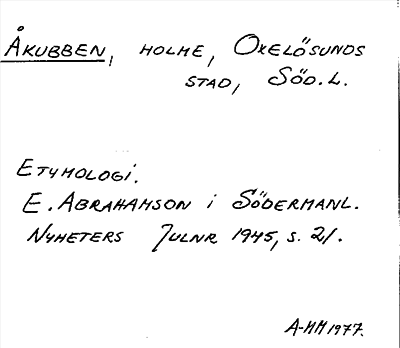 ÅKUBBEN, HOLME, OXELÖSUNDS
STAD, SÖD.L.
ETYMOLOGI.
E. ABRAHAMSON i SÖDERMANL.
NYHETERS JULNR 1945, s. 21.
A-MM 1977.